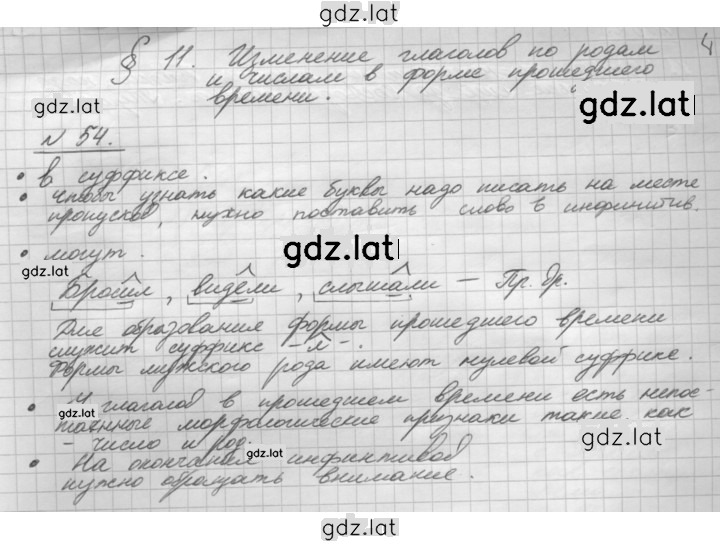 gdz.lat
§ 11. Изменение глаголов по родам 4
и числам в форме прошедшего
времени.
gdz.lat
gdz.lat
№ 54.
• В суффиксе.
• чтобы узнать какие буквы надо писать на месте
пропусков, нужно поставить слово в инфинитив.
• могут.
gdz.lat
gdz.lat
Бросил, видели, слышали — Пр. вр.
Для образования формы прошедшего времени
служит суффикс -л-.
Формы мужского рода имеют нулевой суффикс.
• У глаголов в прошедшем времени есть непос-
gdz.lat
тоянные морфологические признаки такие как
- число и род.
gdz.lat
• На окончания инфинтивов
gdz.lat
нужно обращать внимание.
gdz.lat